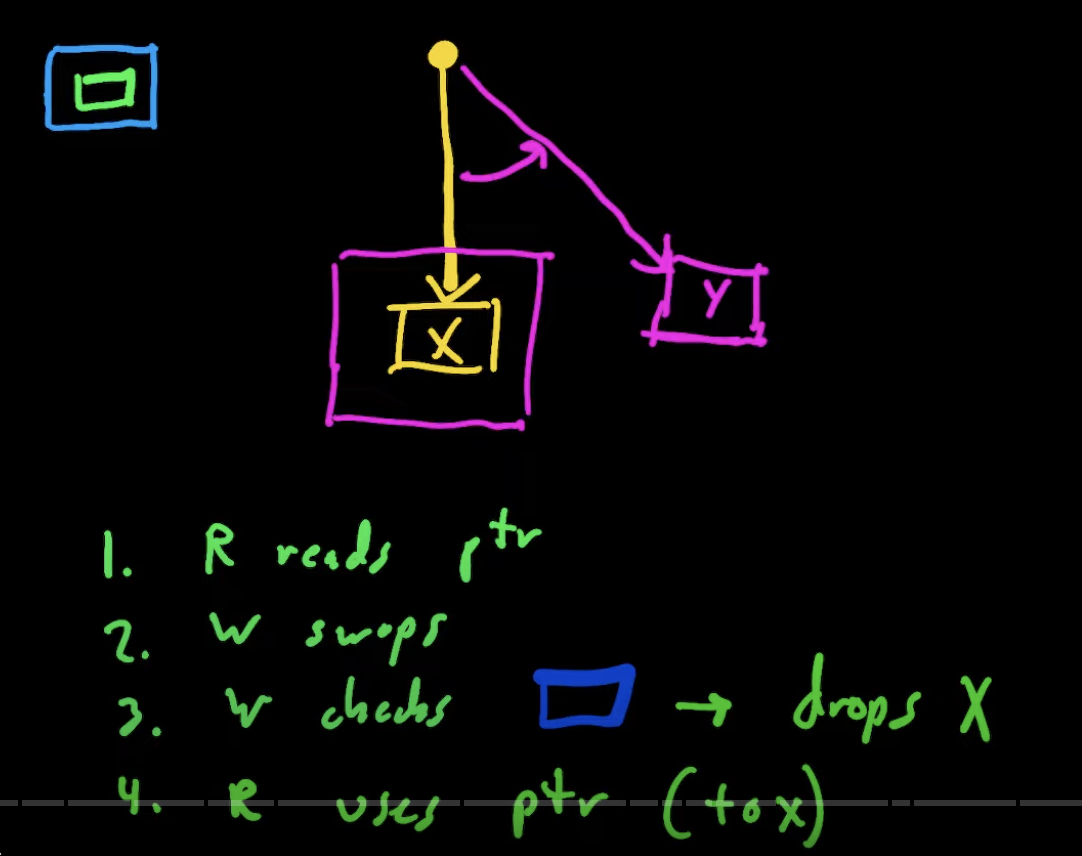 X
Y
1. R reads ptr
2. W swaps
3. W checks → drops X
4. R uses ptr (to x)